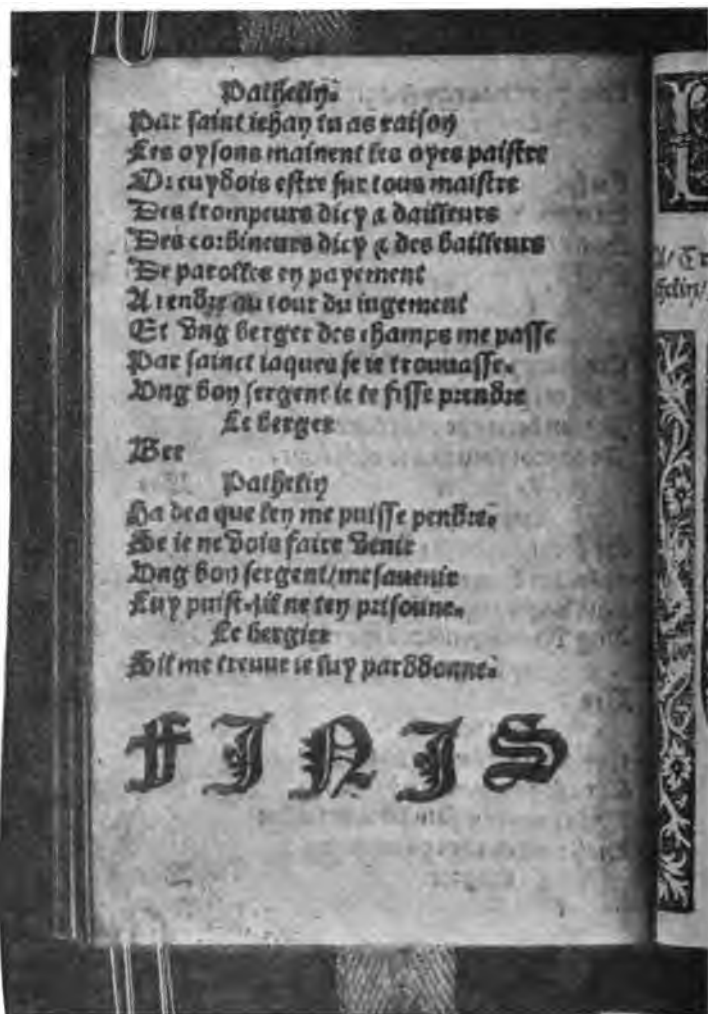 Pathelin.
Par saint iehan tu as raison
Les oysons mainent les oyes paistre
Or cuydois estre sur tous maistre
Des trompeurs dicy & dailleurs
Des corbineurs dicy & des bailleurs
De parolles en payement
A rendre au iour du iugement
Et vng berger des champs me passe
Par sainct iaques se ie trouuasse.
Vng bon sergent ie te fisse prendre
Le berger
Bee
Pathelin
Ha dea que len me puisse pendre.
Se ie ne vois faire venir
Vng bon sergent/mesauenir
Luy puist.sil ne ten prisonne.
Le bergier
Sil me treuue ie luy pardδonne.
FINIS